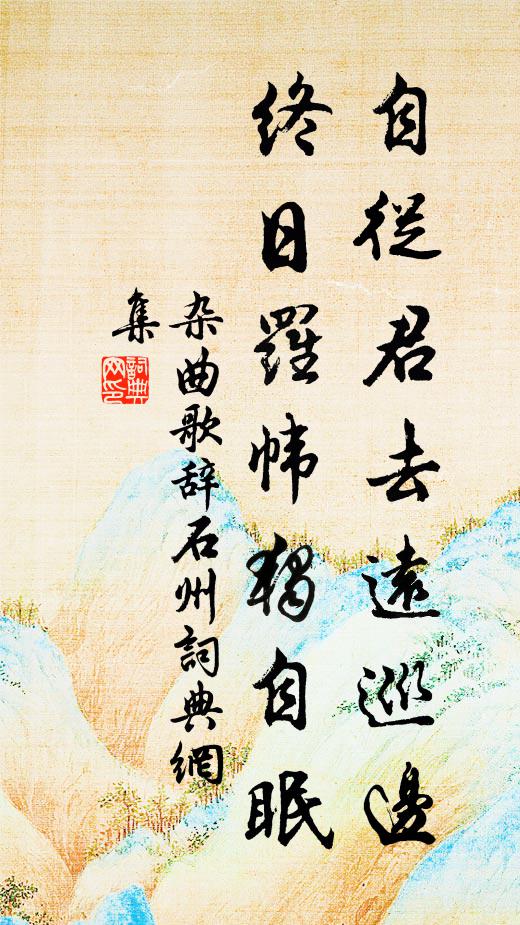 自從君去遠巡邊
終日羅幃獨自眠
杂曲歌辞石州詞典網
集
詞典
网印